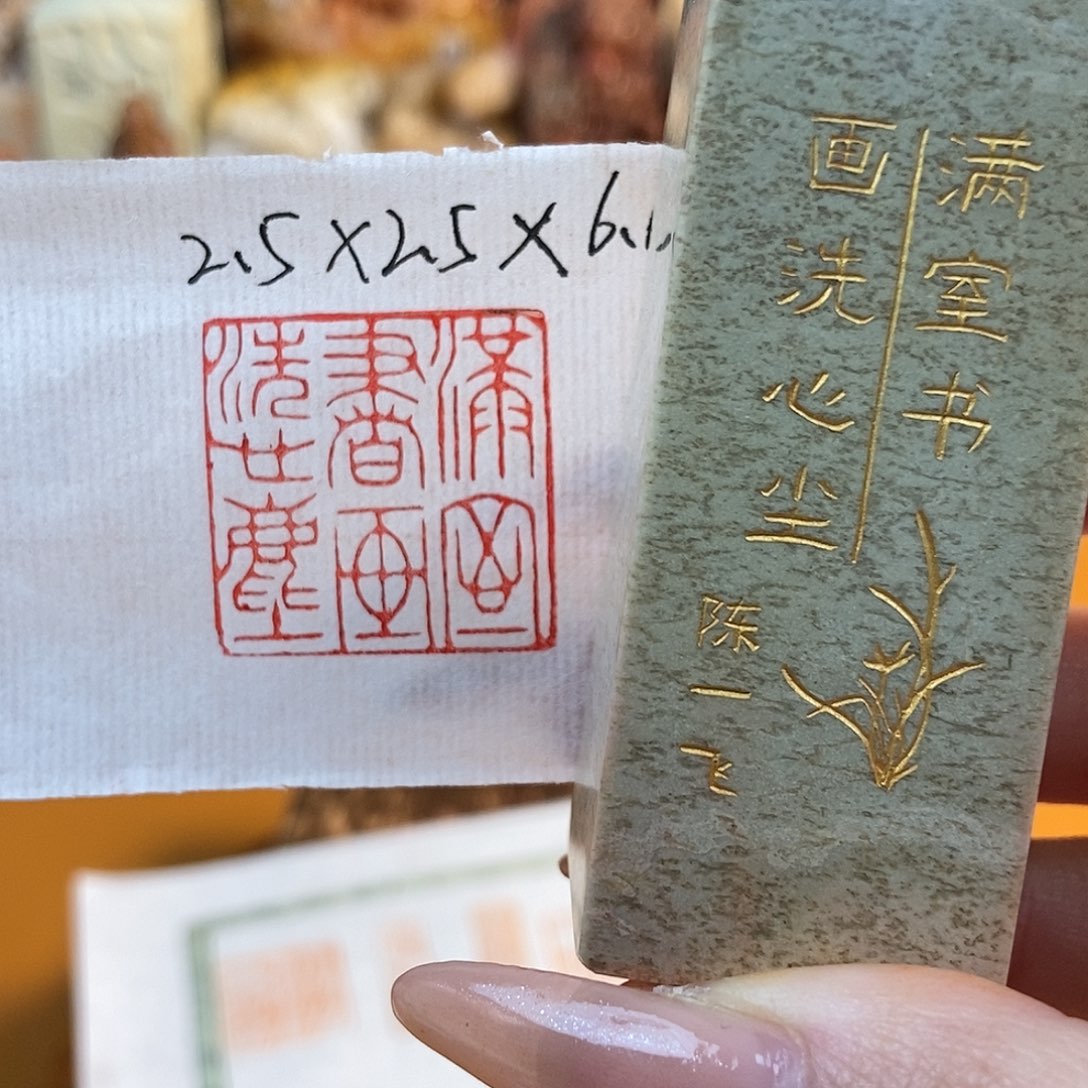 2.5×2.5×6.1
滿室
書画
洗世塵
满室书
画洗心尘
陈一飞